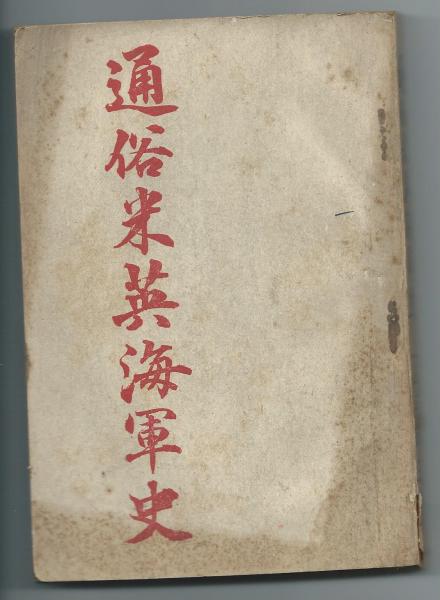 通俗米英海軍史